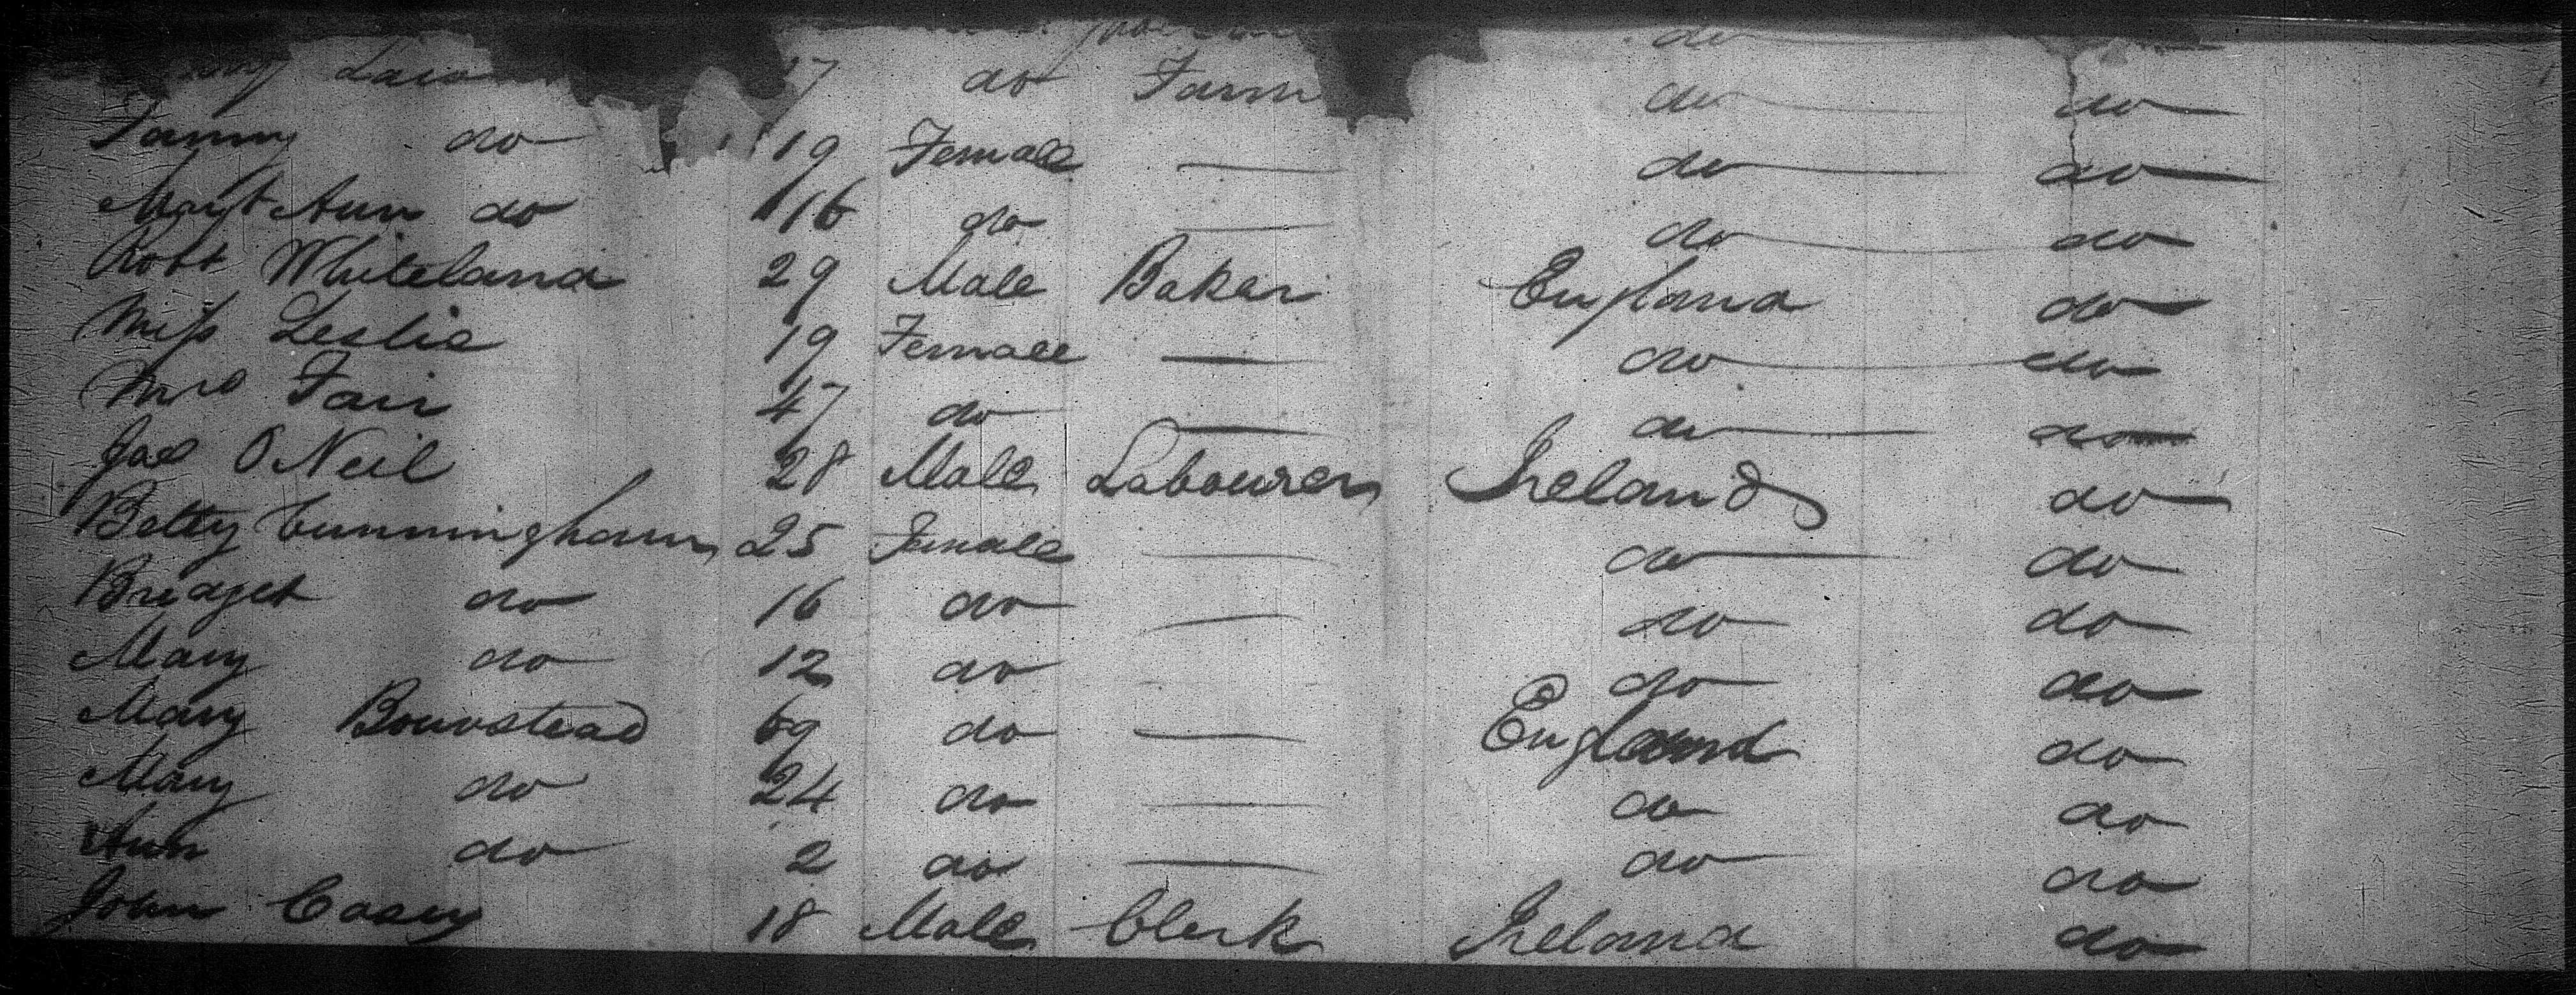 do
Law 17 do Farm do do
Fanny do 19 Female — do do
Margt Ann do 16 do — do do
Robt Whiteland 29 Male Baker England do
Miss Leslie 19 Female — do do
Mrs Fair 47 do — do do
Jas O Neil 28 Male Labourer Ireland do
Betty Cunningham 25 Female — do do
Bridget do 16 do — do do
Mary do 12 do do do
Mary Bouwstead 69 do — England do
Mary do 24 do — do do
Ann do 2 do — do do
John Casey 18 Male Clerk Ireland do